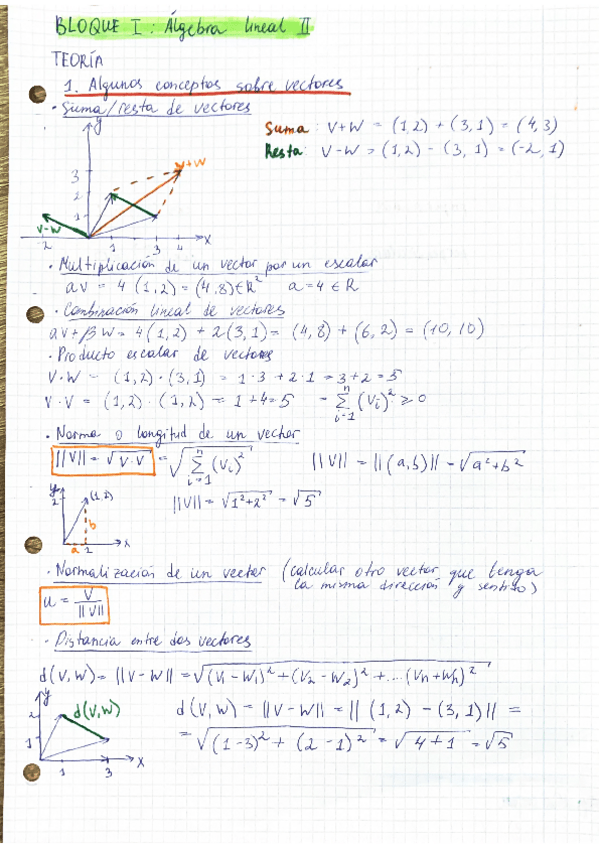 BLOQUE I: Álgebra lineal II
TEORÍA
1. Algunos conceptos sobre vectores
· Suma/resta de vectores
Suma: V+W = (1,2) + (3,1) = (4,3)
Resta: V-W = (1,2) - (3,1) = (-2,1)
y
3
2
1
V+W
V-W
-2
1
3
4
x
· Multiplicación de un vector por un escalar
av = 4 (1,2) = (4,8) ∈ R² a=4 ∈ R
· Combinación lineal de vectores
av+βw = 4(1,2) + 2(3,1) = (4,8) + (6,2) = (10,10)
· Producto escalar de vectores
V·W = (1,2)·(3,1) = 1·3 + 2·1 = 3+2 = 5
V·V = (1,2)·(1,2) = 1+4=5 = ∑ᵢ₌₁ⁿ (Vi)² ≥ 0
· Norma o longitud de un vector
||V|| = √V·V = √∑ᵢ₌₁ⁿ (Vi)² ||V|| = ||(a,b)|| = √a²+b²
y
2
(1,2)
b
a
2
x
||V|| = √1²+2² = √5
· Normalización de un vector (calcular otro vector que tenga
la misma dirección y sentido)
u = V/||V||
· Distancia entre dos vectores
d(V,W) = ||V-W|| = √(V1-W1)²+(V2-W2)²+...(Vn+Wn)²
y
2
1
d(V,W)
1
3
x
d(V,W) = ||V-W|| = ||(1,2) - (3,1)|| =
= √(1-3)² + (2-1)² = √4+1 = √5